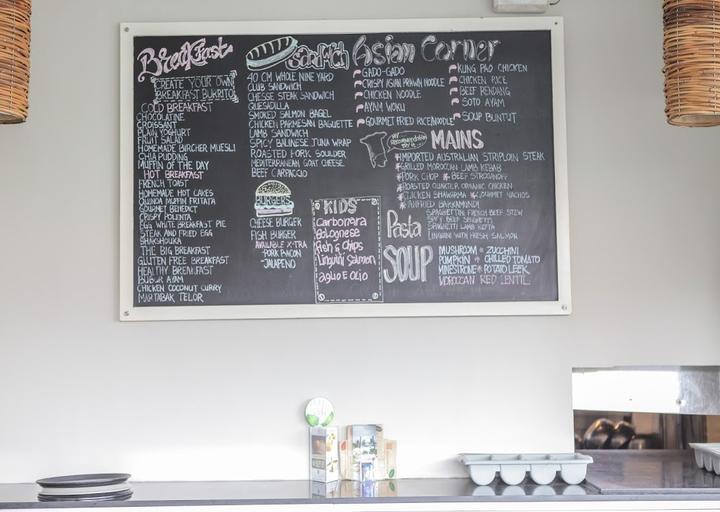 Breakfast
CREATE YOUR OWN
BREAKFAST BURRITO
COLD BREAKFAST
CHOCOLATINE
CROISSANT
PLAIN YOGHURT
FRUIT SALAD
HOMEMADE BIRCHER MUESLI
CHIA PUDDING
MUFFIN OF THE DAY
HOT BREAKFAST
FRENCH TOAST
HOMEMADE HOT CAKES
QUINOA MUFFIN FRITATA
GOURMET BENEDICT
CRISPY POLENTA
EGG WHITE BREAKFAST PIE
STEAK AND FRIED EGG
SHAKSHOUKA
THE BIG BREAKFAST
GLUTEN FREE BREAKFAST
HEALTHY BREAKFAST
BUBUR AYAM
CHICKEN COCONUT CURRY
MARTABAK TELOR
SANDWICH
40 CM WHOLE NINE YARD
CLUB SANDWICH
CHEESE STEAK SANDWICH
QUESADILLA
SMOKED SALMON BAGEL
CHICKEN PARMESAN BAGUETTE
LAMB SANDWICH
SPICY BALINESE TUNA WRAP
ROASTED PORK SOULDER
MEDITERRANEAN GOAT CHEESE
BEEF CARPACCIO
BURGERS
CHEESE BURGER
FISH BURGER
AVAILABLE X-TRA
-PORK BACON
-JALAPENO
KIDS
Carbonara
Bolognese
Fish & chips
Linguini Salmon
aglio E olio
Asian Corner
GADO-GADO
CRISPY ASIAN PRAWN NOODLE
CHICKEN NOODLE
AYAM WOKU
GOURMET FRIED RICE/NOODLE
KUNG PAO CHICKEN
CHICKEN RICE
BEEF RENDANG
SOTO AYAM
SOUP BUNTUT
MAINS
IMPORTED AUSTRALIAN STRIPLOIN STEAK
GRILLED MOROCCAN LAMB KEBAB
PORK CHOP * BEEF STROGANOFF
ROASTED QUARTER ORGANIC CHICKEN
CHICKEN SHAWARMA * GOURMET NACHOS
Pasta
SPAGHETTINI FRENCH BEEF STEW
SPICY BEEF SPAGHETTI
SPAGHETTI LAMB KOFTA
LINGUINI WITH FRESH SALMON
SOUP
MUSHROOM * ZUCCHINI
PUMPKIN * CHILLED TOMATO
MINESTRONE * POTATO LEEK
MOROCCAN RED LENTIL